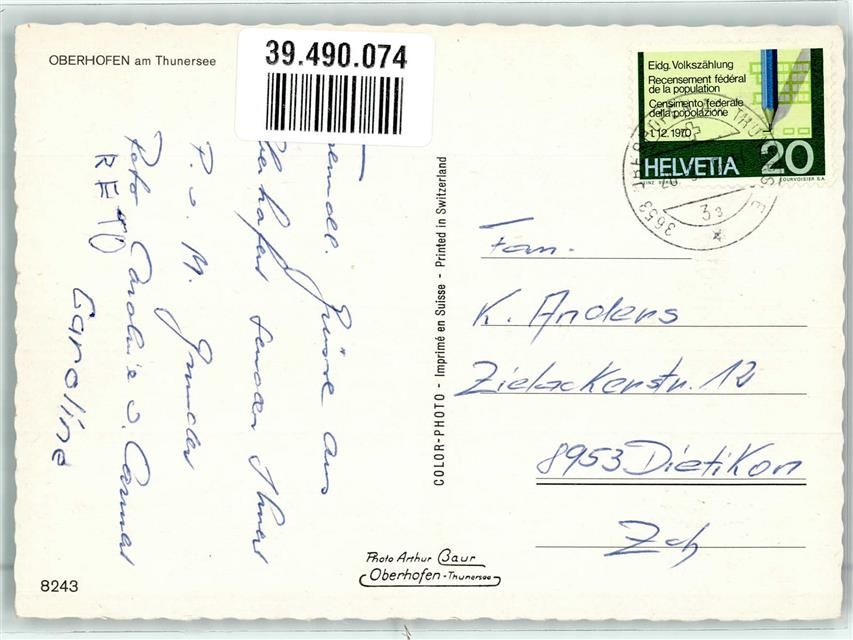 OBERHOFEN am Thunersee
39.490.074
Eidg. Volkszählung
Recensement fédéral
de la population
Censimento federale
della popolazione
1.12.1970
HELVETIA 20
COURVOISIER S.A.
3653
COLOR-PHOTO - Imprimé en Suisse - Printed in Switzerland
Grüsse aus
senden Ihnen
P. u. M.
Reto Caroline u.
RETO
Caroline
Fam.
K. Anders
Zielackerstr. 12
8953 Dietikon
Zch
Photo Arthur Baur
Oberhofen-Thunersee
8243